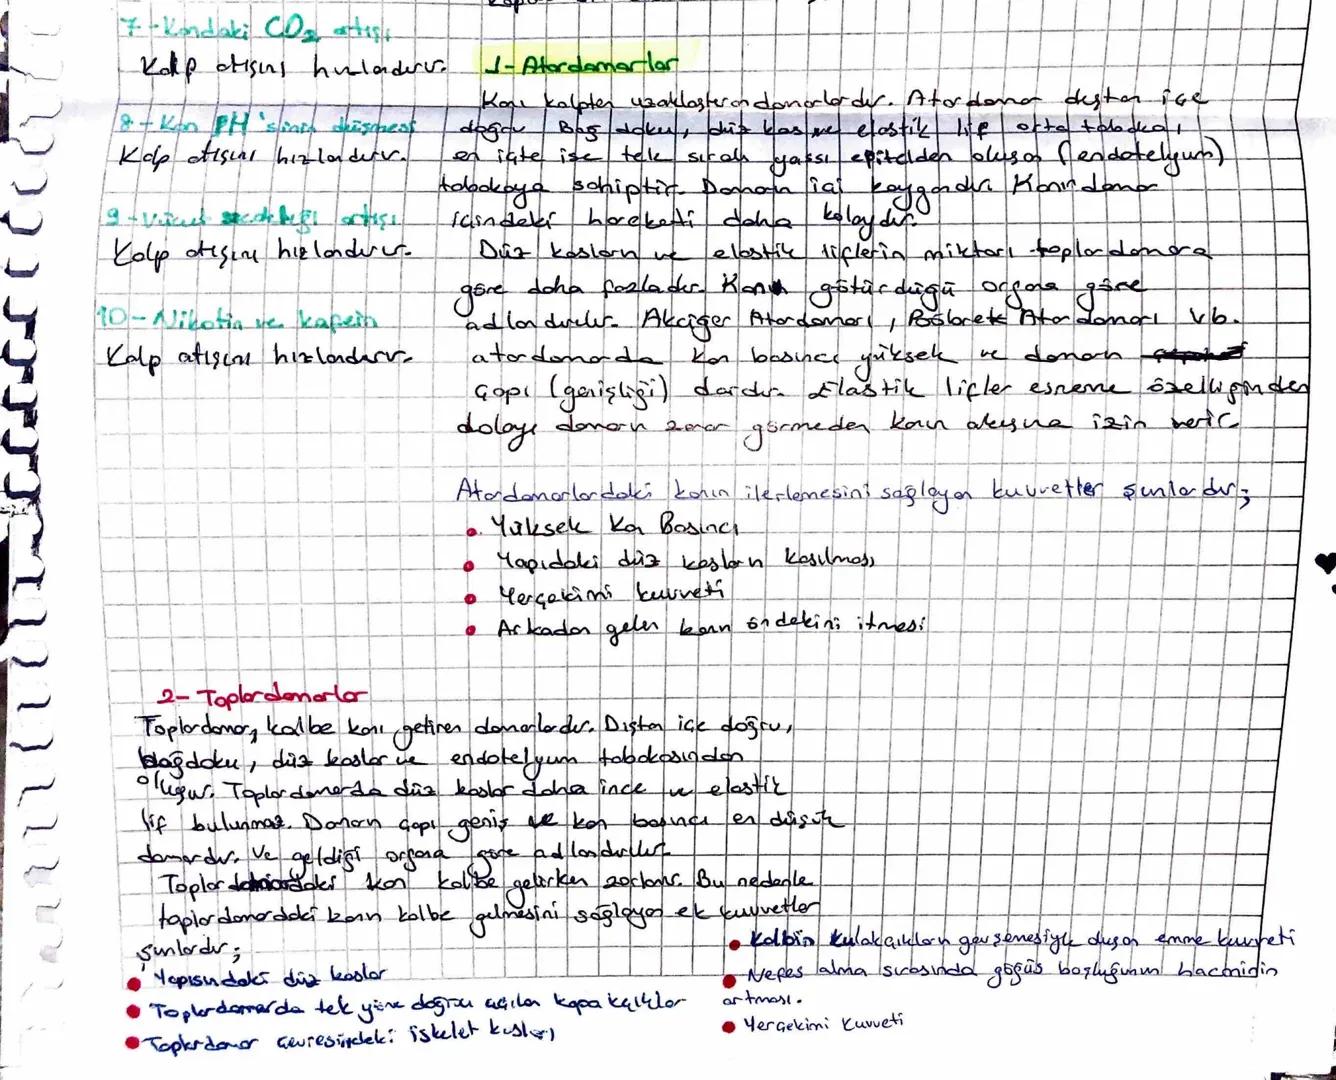 7-Kandaki CO2 artışı
Kalp atışını hızlandırır.
8-Kan PH'sinin düşmesi
Kalp atışını hızlandırır.
9-Vücut sıcaklığı artışı
Kalp atışını hızlandırır.
10-Nikotin ve kafein
Kalp atışını hızlandırır.
1-Atardamarlar
Kanı kalpten uzaklaştıran damarlardır. Atardamar dıştan içe
doğru Bağ doku, düz kas ve elastik lif orta tabaka,
en içte ise tek sıralı yassı epitelden oluşan (endotelyum)
tabakaya sahiptir. Damarın içi kaygandır. Kanın damar
içindeki hareketi daha kolaydır.
Düz kasların ve elastik liflerin miktarı toplardamara
göre daha fazladır. Kanın götürdüğü organa göre
adlandırılır. Akciğer Atardamarı, Böbrek Atardamarı vb.
atardamarda kan basıncı yüksek ve damarın
çapı (genişliği) dardır. Elastik lifler esneme özelliğinden
dolayı damarın zarar görmeden kanın akışına izin verir.
Atardamarlardaki kanın ilerlemesini sağlayan kuvvetler şunlardır;
• Yüksek Kan Basıncı
• Yapıdaki düz kasların kasılması
• Yerçekimi kuvveti
• Arkadan gelen kanın öndekini itmesi
2-Toplardamarlar
Toplardamar, kalbe kanı getiren damarlardır. Dıştan içe doğru,
bağdoku, düz kaslar ve endotelyum tabakasından
oluşur. Toplardamarda düz kaslar daha ince ve elastik
lif bulunmaz. Damarın çapı geniş ve kan basıncı en düşük
damardır. Ve geldiği organa göre adlandırılır.
Toplardamardaki kan kalbe gelirken zorlanır. Bu nedenle
toplardamardaki kanın kalbe gelmesini sağlayan ek kuvvetler
şunlardır;
• Yapısındaki düz kaslar
• Toplardamarda tek yöne doğru açılan kapakçıklar
• Toplardamar çevresindeki iskelet kasları
• Kalbin kulakçıkların gevşemesiyle oluşan emme kuvveti
• Nefes alma sırasında göğüs boşluğunun hacminin
artması.
• Yerçekimi Kuvveti